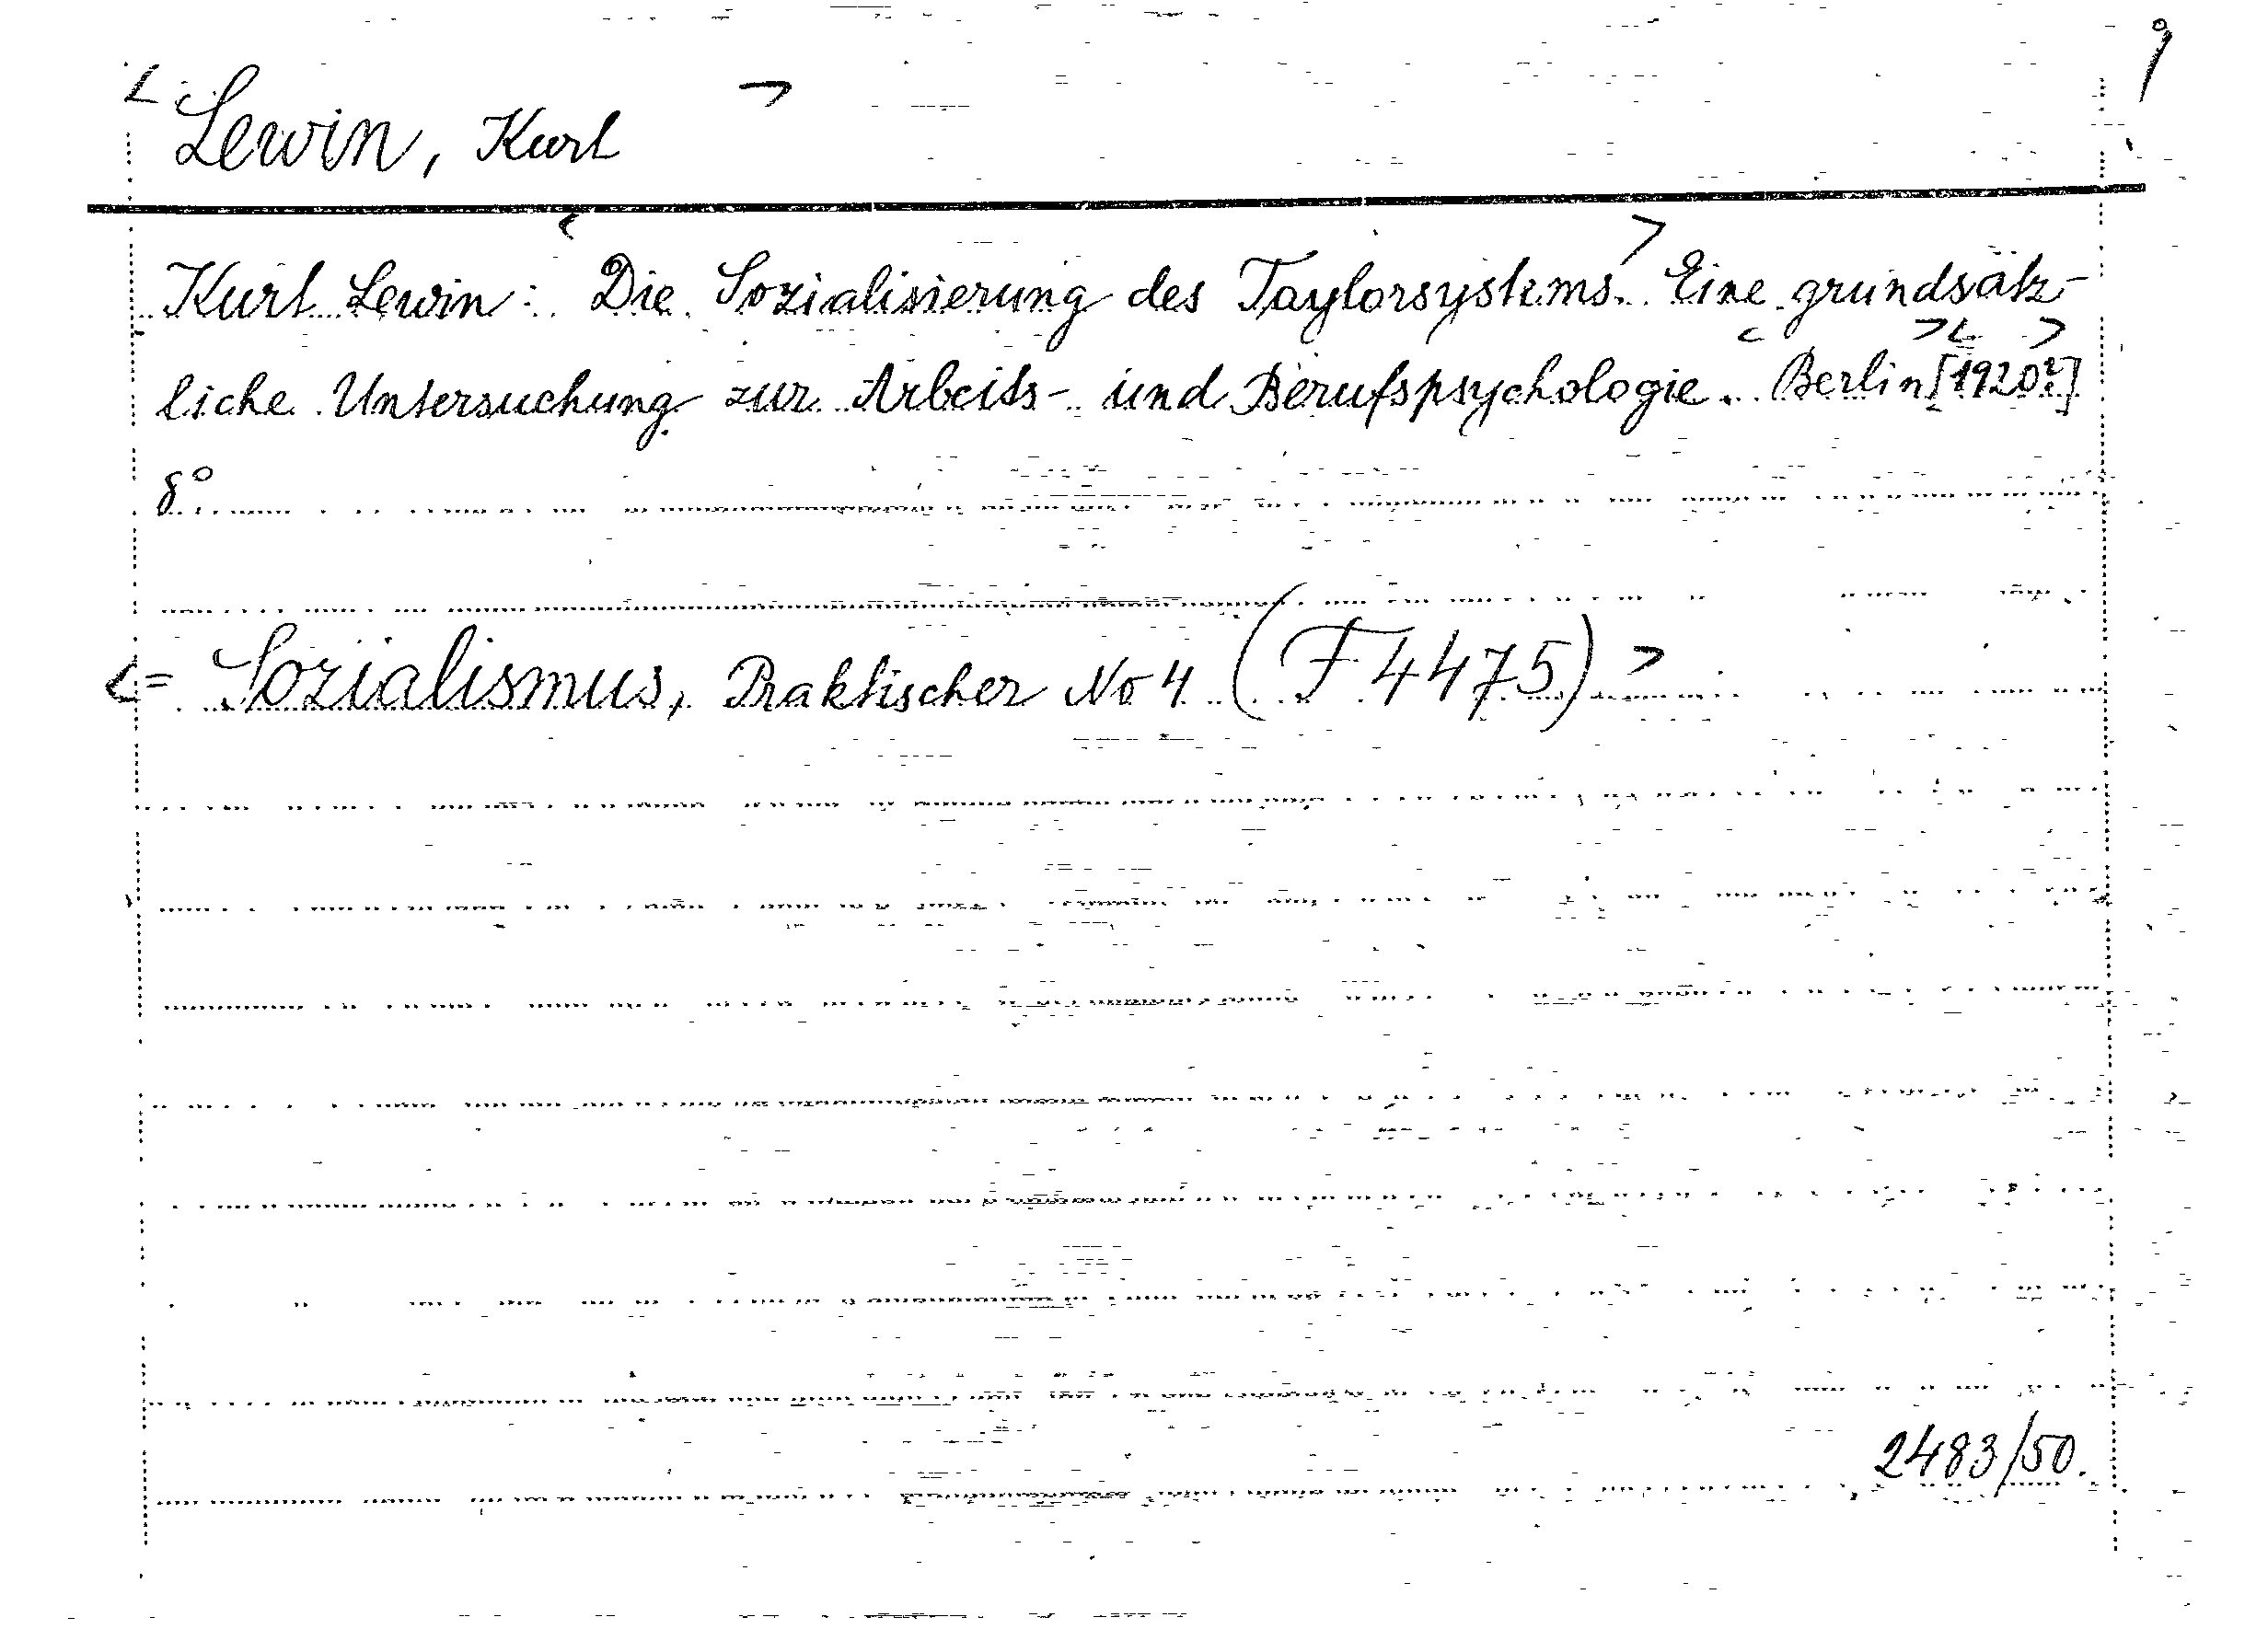 Lewin, Kurt
Kurt Lewin: Die Sozialisierung des Taylorsystems. Eine grundsätz-
liche Untersuchung zur Arbeits- und Berufspsychologie. Berlin [1920?]
8°
= Sozialismus, Praktischer No 4 (F 4475)
2483/50.